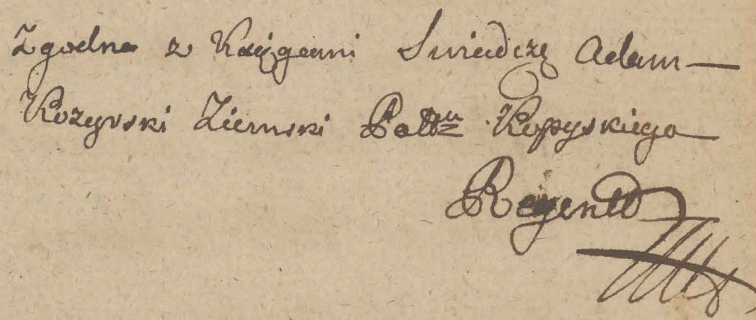 Zgodno z Xięgami Swiadczę Adam
Kozyrski Ziemski Pattu Kopyskiego
Regent